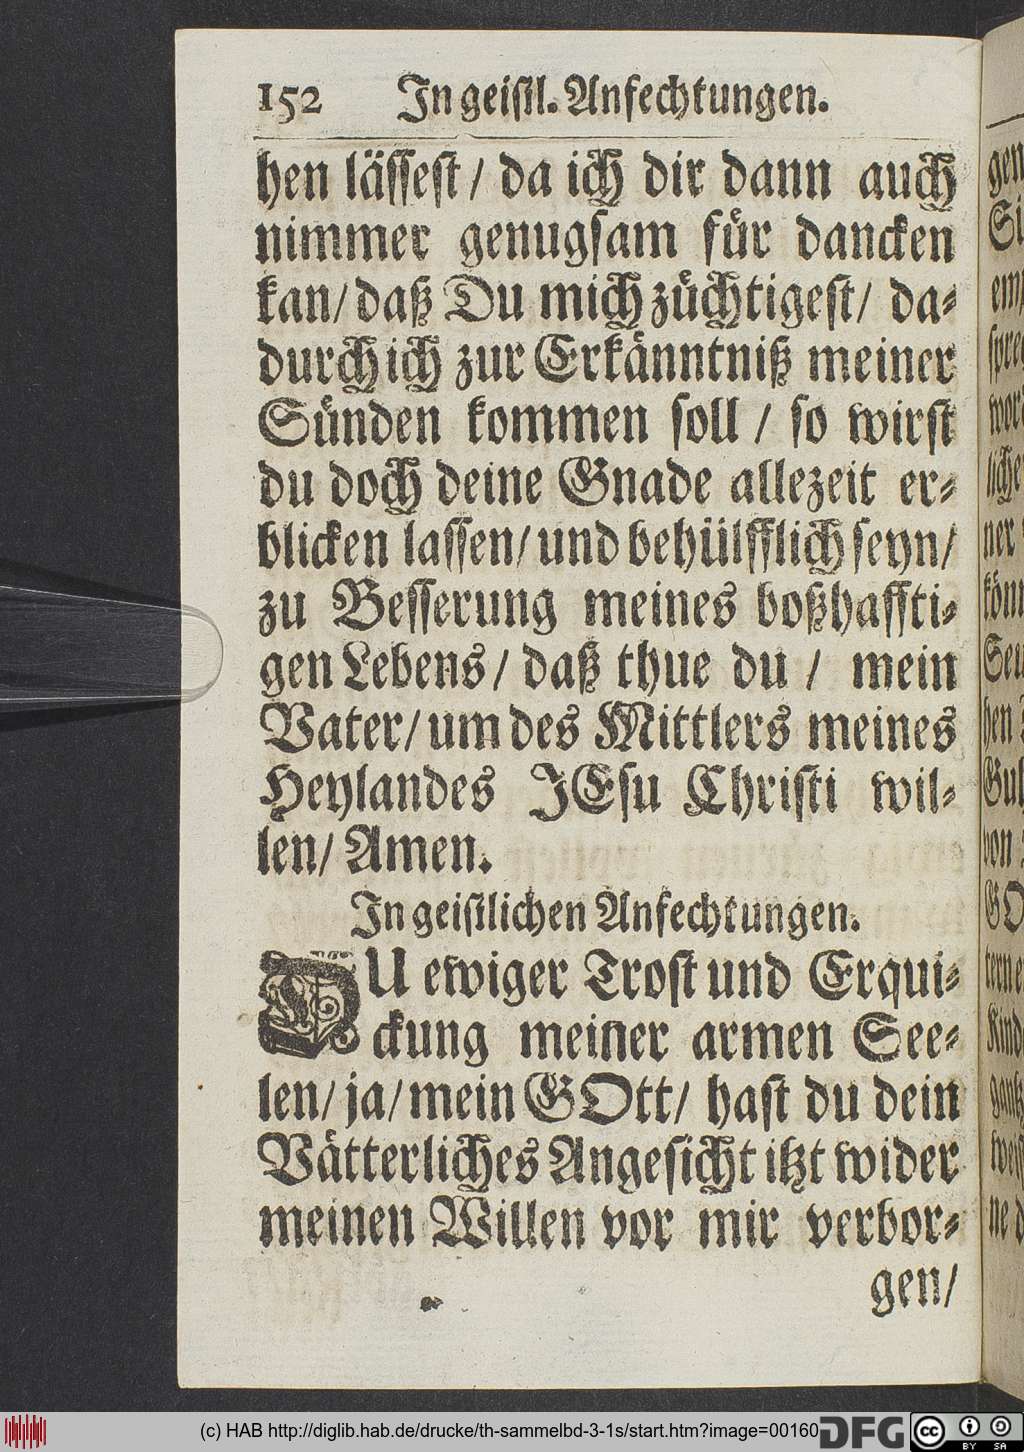 152 In geistl. Anfechtungen.
hen lässest / da ich dir dann auch
nimmer genugsam für dancken
kan / daß Du mich züchtigest / da-
durch ich zur Erkänntniß meiner
Sünden kommen soll / so wirst
du doch deine Gnade allezeit er-
blicken lassen / und behülfflich seyn /
zu Besserung meines boßhaffti-
gen Lebens / daß thue du / mein
Vater / um des Mittlers meines
Heylandes JEsu Christi wil-
len / Amen.
In geistlichen Anfechtungen.
DU ewiger Trost und Erqui-
ckung meiner armen See-
len / ja / mein GOtt / hast du dein
Vätterliches Angesicht itzt wider
meinen Willen vor mir verbor-
gen /
gen
Si
em
spre
wor
liche
ner
könn
Seu
hen
von
GO
Kind
gantz
weis
ne d
(c) HAB http://diglib.hab.de/drucke/th-sammelbd-3-1s/start.htm?image=00160
DFG
cc BY SA